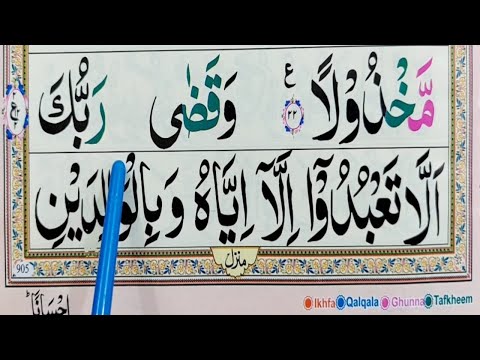 مَّخْذُوْلًا ۲۲ ع وَقَضٰى رَبُّكَ
اَلَّا تَعْبُدُوْۤا اِلَّاۤ اِيَّاهُ وَبِالْوَالِدَيْنِ
905 منزل
اِحْسَانًا ؕ
Ikhfa Qalqala Ghunna Tafkheem